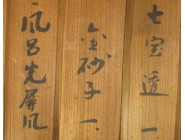 七宝透一
金砂子一
風呂先屏風